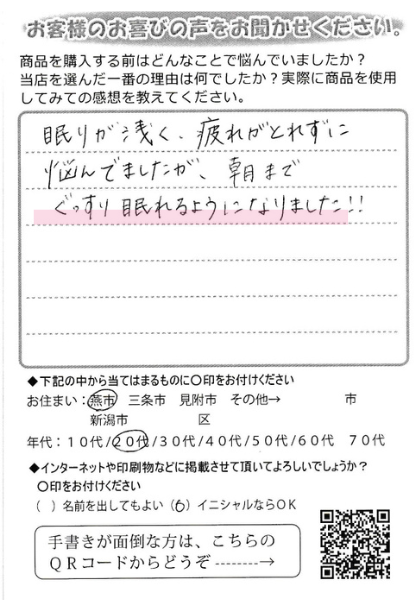 お客様のお喜びの声をお聞かせください。
商品を購入する前はどんなことで悩んでいましたか？
当店を選んだ一番の理由は何でしたか？実際に商品を使用
してみての感想を教えてください。
眠りが浅く、疲れがとれずに
悩んでましたが、朝まで
ぐっすり眠れるようになりました!!
◆下記の中から当てはまるものに〇印をお付けください
お住まい：燕市　三条市　見附市　その他→　　　　市
新潟市　　　　　区
年代：１０代/２０代/３０代/４０代/５０代/６０代　７０代
◆インターネットや印刷物などに掲載させて頂いてよろしいでしょうか？
〇印をお付けください
（　）名前を出してもよい（〇）イニシャルならＯＫ
手書きが面倒な方は、こちらの
ＱＲコードからどうぞ--------→